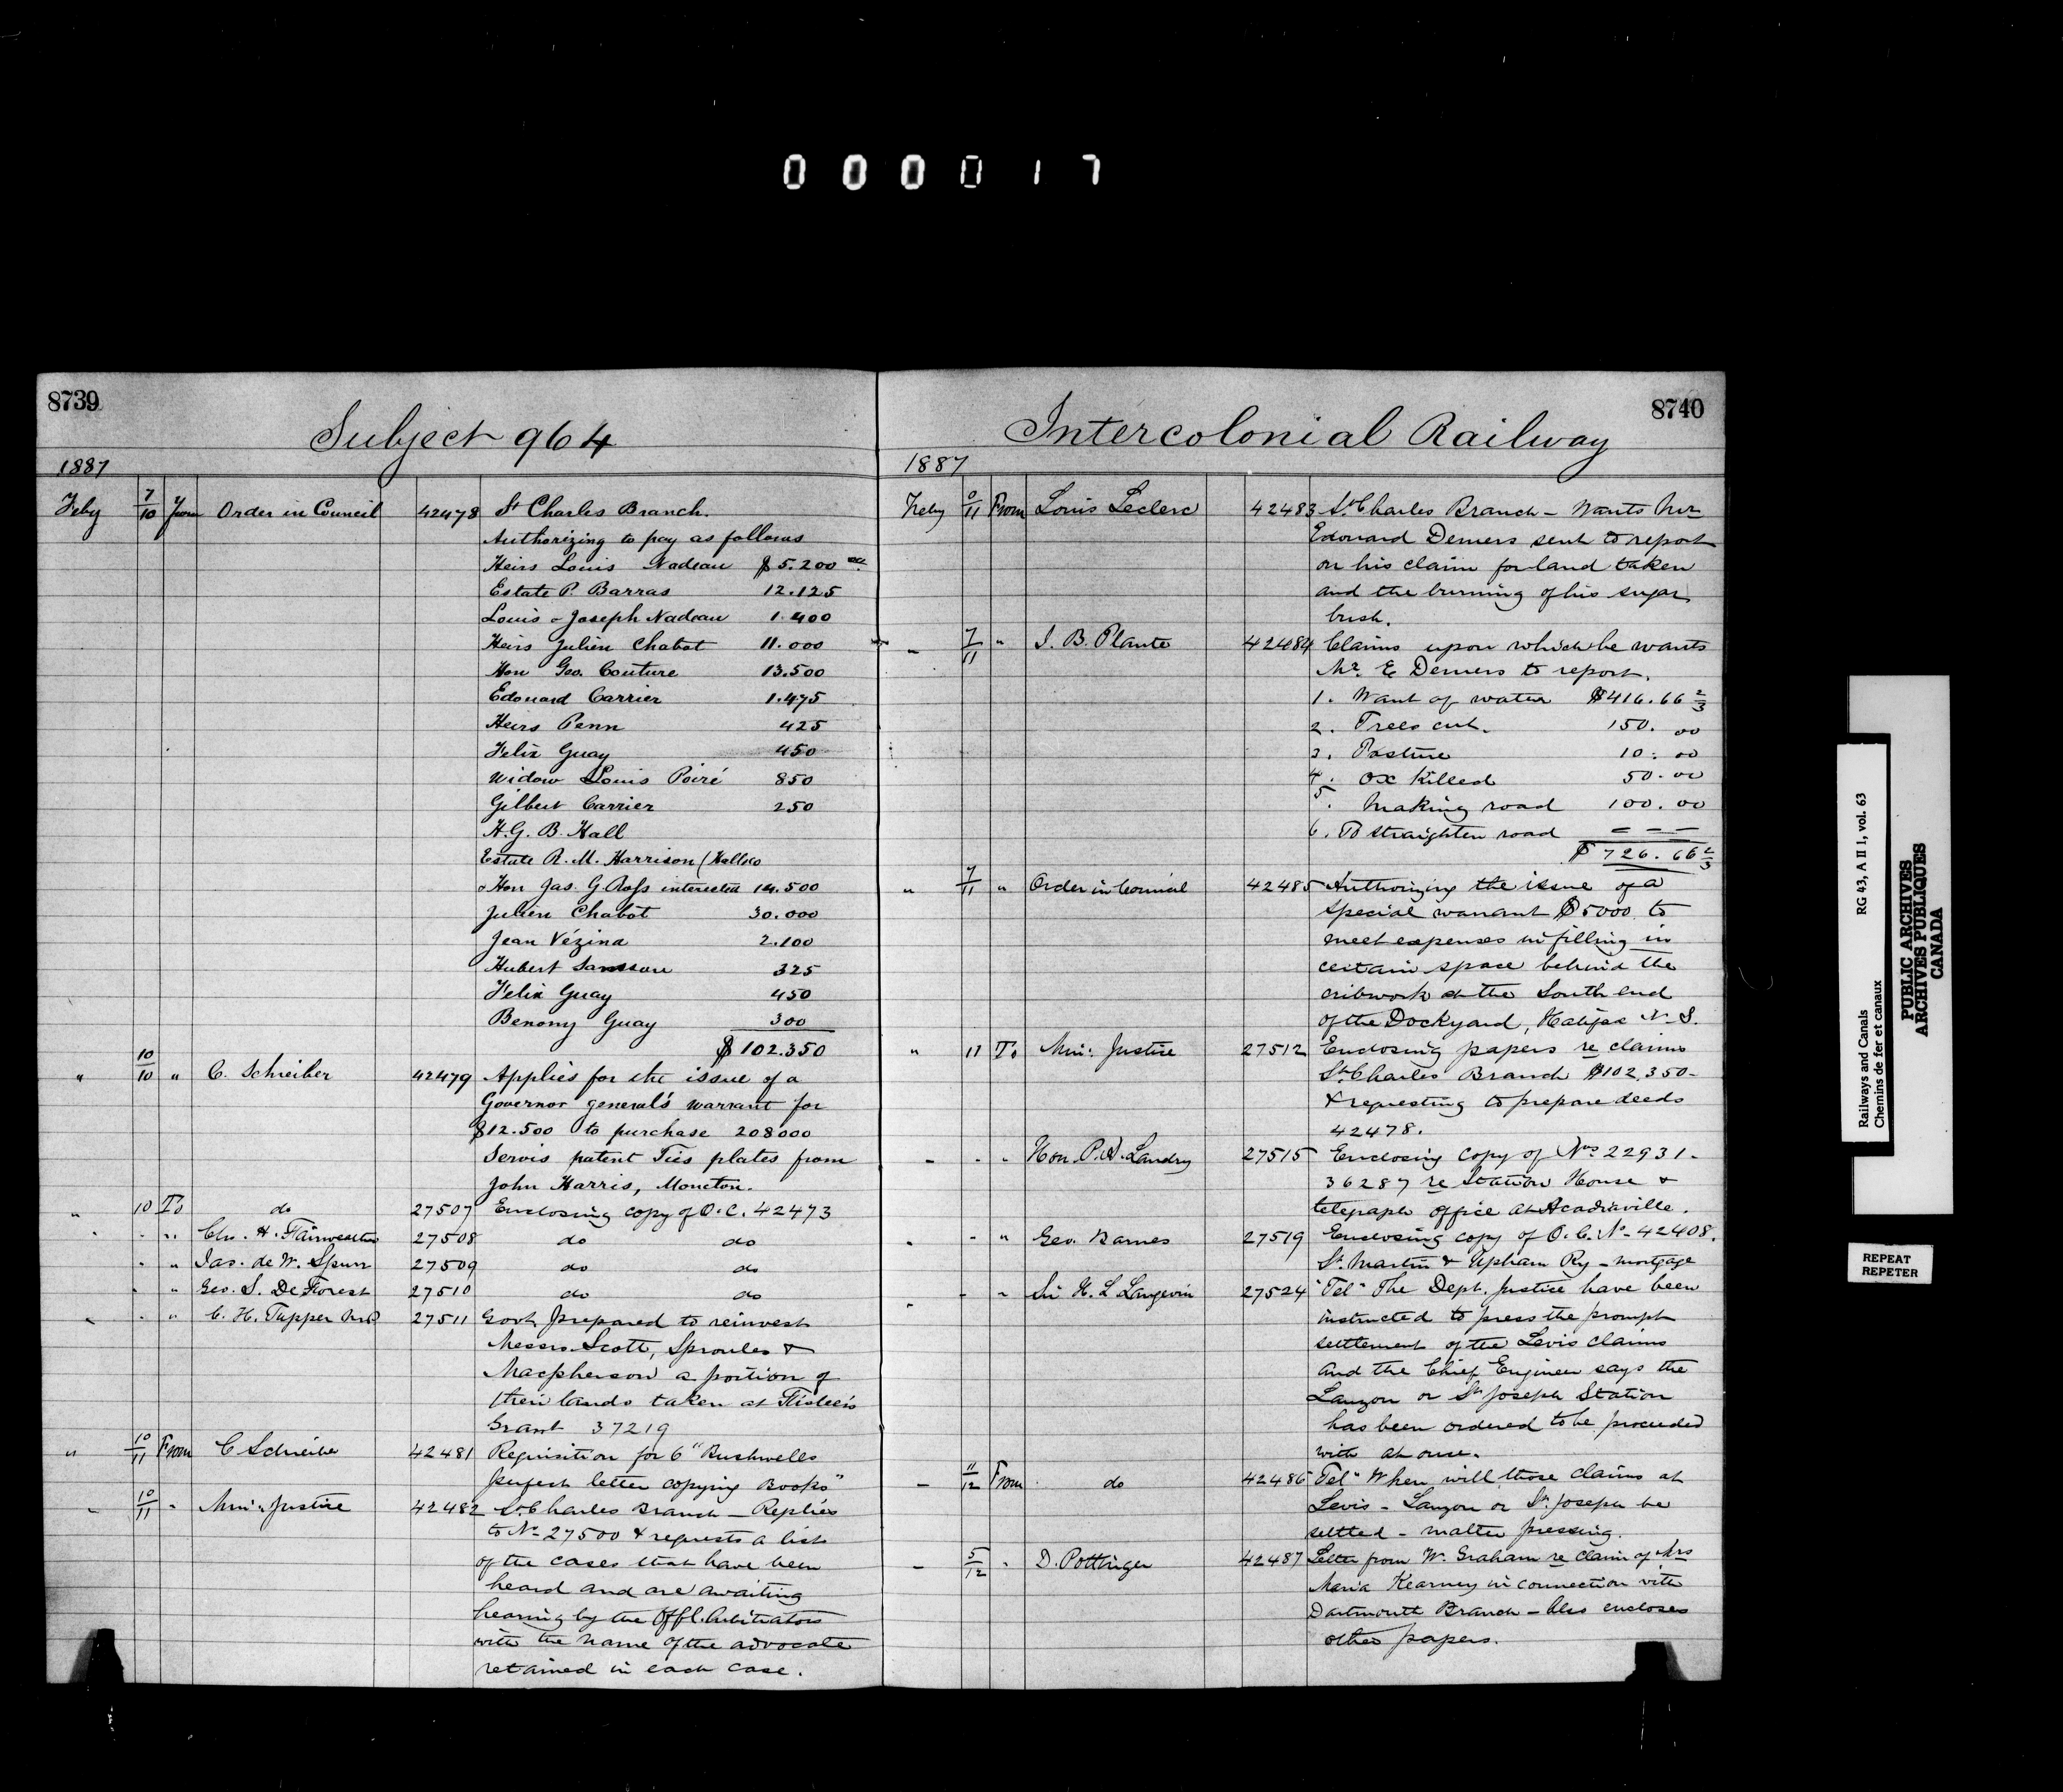 000017
8739
Subject 964
1887
Feby 7/10 From Order in Council 42478 St Charles Branch.
Authorizing to pay as follows
Heirs Louis Nadeau $5.200 00
Estate P. Barras 12.125
Louis & Joseph Nadeau 1.400
Heirs Julien Chabot 11.000
Hon Geo. Couture 13.500
Edouard Carrier 1.475
Heirs Penn 425
Felix Guay 450
Widow Louis Poiré 850
Gilbert Carrier 250
H. G. B. Hall
Estate R. M. Harrison (Hall &co
& Hon Jas. G. Ross interested 14.500
Julien Chabot 30.000
Jean Vézina 2.100
Hubert 325
Felix Guay 450
Benony Guay 300
$102.350
" 10/10 " C. Schreiber 42479 Applies for the issue of a
Governor general's warrant for
$12.500 to purchase 208000
Servis patent Ties plates from
John Harris, Moncton.
" 10 To do 27507 Enclosing copy of O.C. 42473
" " " Chs. H. Fairweather 27508 do do
" " Jas. de W. Spurr 27509 do do
" " Geo. S. De Forest 27510 do do
" " " C. H. Tupper M.P. 27511 Govt prepared to reinvest
Messrs Scott, Sproules &
Macpherson a portion of
their lands taken at
Grant 37219
" 10/11 From C Schreiber 42481 Requisition for 6 "Bushnells
perfect letter copying Books"
" 10/11 " Min: Justice 42482 St. Charles Branch - Replies
to No 27500 & requests a list
of the cases that have been
heard and are awaiting
hearing by the Offl. Arbitrators
with the name of the advocate
retained in each case.
8740
Intercolonial Railway
1887
Feby 9/11 From Louis Leclerc 42483 St. Charles Branch - Wants Mr
Edouard Demers sent to report
on his claim for land taken
and the burning of his sugar
bush.
" 7/11 " J. B. Plante 42484 Claims upon which he wants
Mr. E Demers to report.
1. Want of water $416.66 2/3
2. Trees cut. 150.00
3. Pasture 10.00
4. Ox killed 50.00
5. Making road 100.00
6. To straighten road - - -
$726.66 2/3
" 7/11 " Order in Council 42485 Authorizing the issue of a
special warrant $5000 to
meet expenses in filling in
certain space behind the
cribwork at the South end
of the Dockyard, Halifax N.S.
" 11 To Min: Justice 27512 Enclosing papers re claims
St. Charles Branch $102,350-
& requesting to prepare deeds
42478.
" " " Hon. P. A. Landry 27515 Enclosing copy of Nos 22931-
36287 re Station House &
telegraph office at Acadiaville.
" " " Geo. Barnes 27519 Enclosing copy of O.C. No 42408.
St. Martin & Upham Ry - mortgage
" " " Sir H. L Langevin 27524 "Tel" The Dept. Justice have been
instructed to press the prompt
settlement of the Levis claims
and the Chief Engineer says the
Lauzon or St. Joseph Station
has been ordered to be proceeded
with at once.
- 11/12 From do 42486 "Tel" When will those claims at
Levis - Lauzon or St. Joseph be
settled - matter pressing.
- 5/12 " D. Pottinger 42487 Letter from W. Graham re claim of Mrs
Maria Kearney in connection with
Dartmouth Branch - Also encloses
other papers.
Railways and Canals RG 43, A II 1, vol. 63
Chemins de fer et canaux
PUBLIC ARCHIVES
ARCHIVES PUBLIQUES
CANADA
REPEAT
REPETER